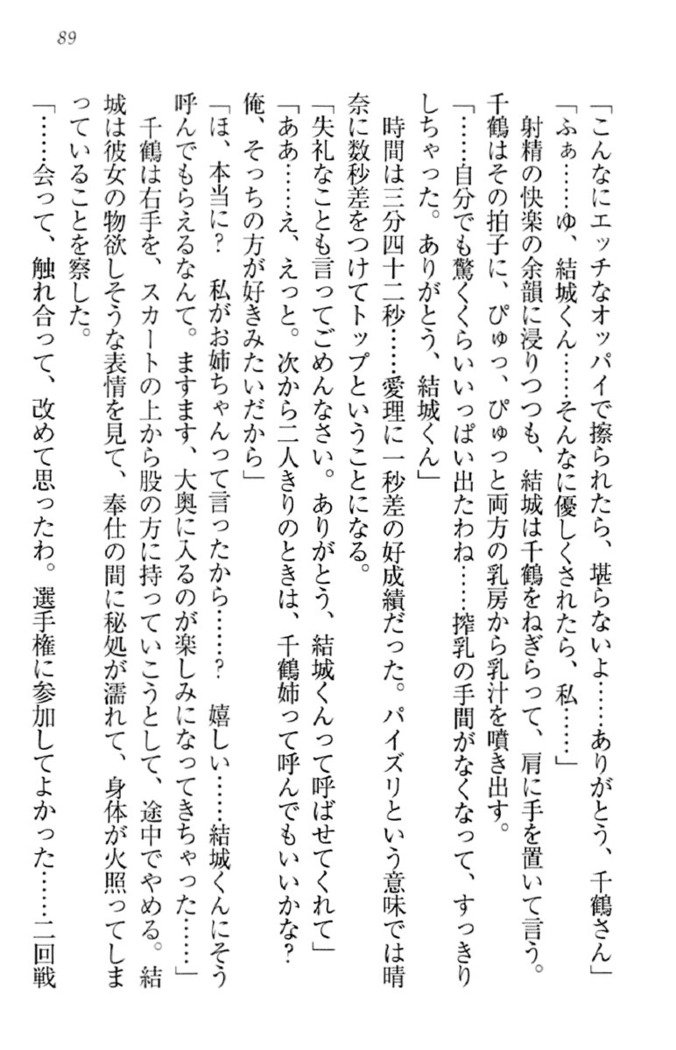 89
「こんなにエッチなオッパイで擦られたら、堪らないよ……ありがとう、千鶴さん」
「ふぁ……ゆ、結城くん……そんなに優しくされたら、私……」
　射精の快楽の余韻に浸りつつも、結城は千鶴をねぎらって、肩に手を置いて言う。
千鶴はその拍子に、ぴゅっ、ぴゅっと両方の乳房から乳汁を噴き出す。
「……自分でも驚くくらいいっぱい出たわね……搾乳の手間がなくなって、すっきり
しちゃった。ありがとう、結城くん」
　時間は三分四十二秒……愛理に一秒差の好成績だった。パイズリという意味では晴
奈に数秒差をつけてトップということになる。
「失礼なことも言ってごめんなさい。ありがとう、結城くんって呼ばせてくれて」
「ああ……え、えっと。次から二人きりのときは、千鶴姉って呼んでもいいかな？
俺、そっちの方が好きみたいだから」
「ほ、本当に？　私がお姉ちゃんって言ったから……？　嬉しい……結城くんにそう
呼んでもらえるなんて。ますます、大奥に入るのが楽しみになってきちゃった……」
　千鶴は右手を、スカートの上から股の方に持っていこうとして、途中でやめる。結
城は彼女の物欲しそうな表情を見て、奉仕の間に秘処が濡れて、身体が火照ってしま
っていることを察した。
「……会って、触れ合って、改めて思ったわ。選手権に参加してよかった……二回戦